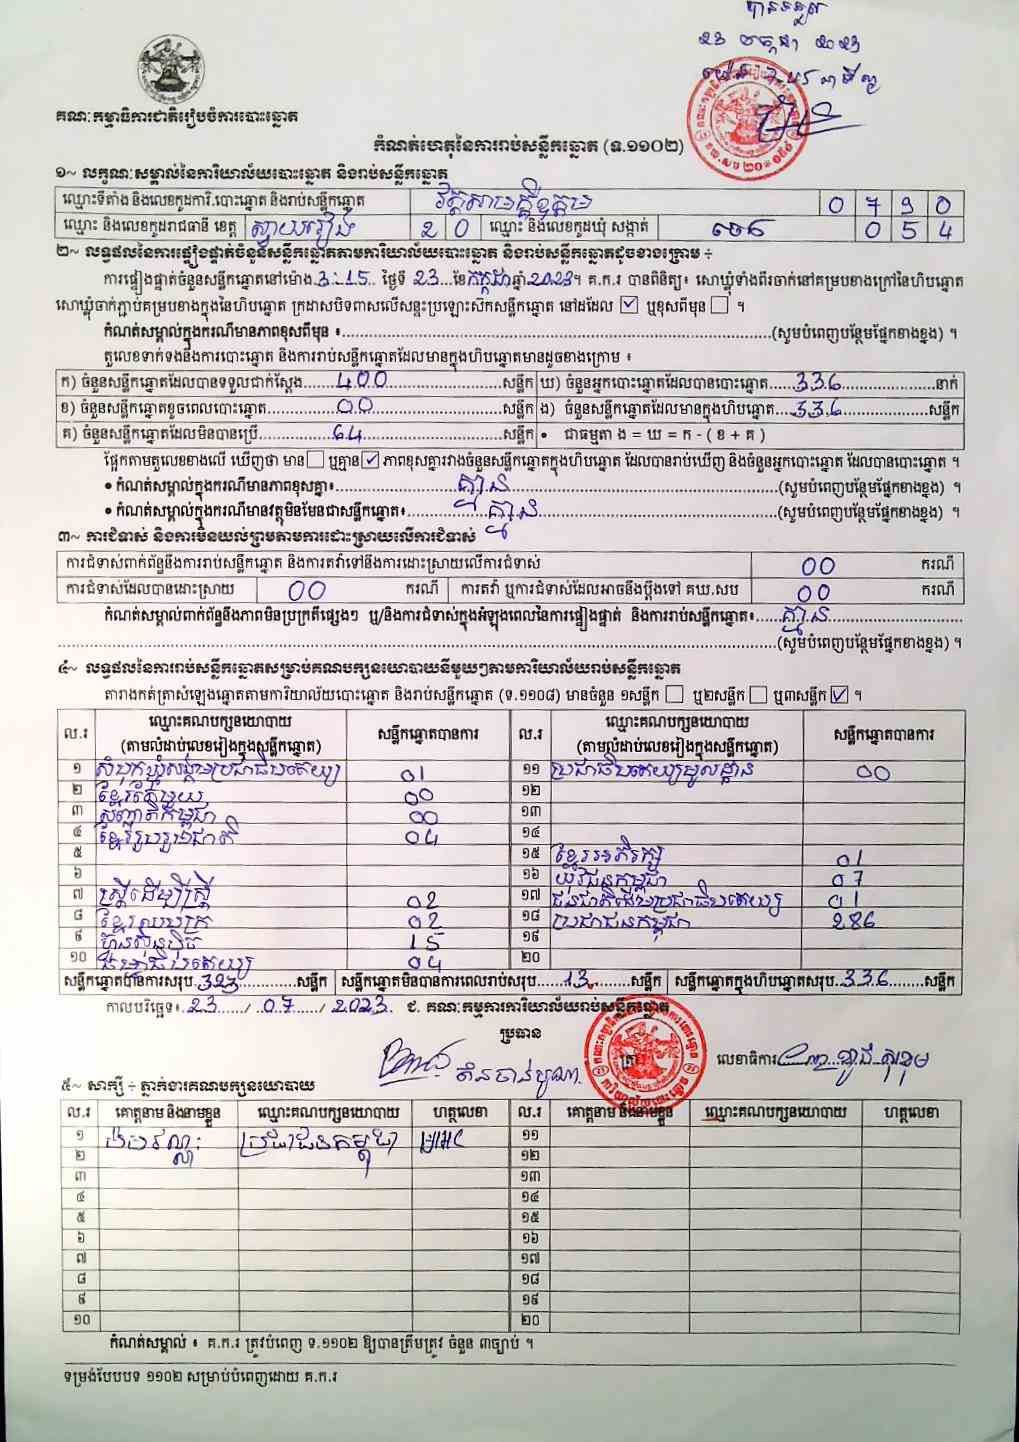 បានទទួល
២៦ កក្កដា ២០២៣
គណៈកម្មាធិការជាតិរៀបចំការបោះឆ្នោត
កំណត់ហេតុនៃការរាប់សន្លឹកឆ្នោត (ទ.១១០២)
១~ លក្ខណៈសម្គាល់នៃការិយាល័យបោះឆ្នោត និងរាប់សន្លឹកឆ្នោត
ឈ្មោះទីតាំង និងលេខកូដការិ.បោះឆ្នោត និងរាប់សន្លឹកឆ្នោត វត្តសាមគ្គីឧត្តម 0 7 9 0
ឈ្មោះ និងលេខកូដរាជធានី ខេត្ត ស្វាយរៀង 2 0 ឈ្មោះ និងលេខកូដឃុំ សង្កាត់ 0 5 4
២~ លទ្ធផលនៃការផ្ទៀងផ្ទាត់ចំនួនសន្លឹកឆ្នោតតាមការិយាល័យបោះឆ្នោត និងរាប់សន្លឹកឆ្នោតដូចខាងក្រោម ÷
ការផ្ទៀងផ្ទាត់ចំនួនសន្លឹកឆ្នោតនៅម៉ោង 3:15 ថ្ងៃទី 23 ខែ កក្កដា ឆ្នាំ 2023។ គ.ក.រ បានពិនិត្យ៖ សោឃ្លុំទាំងពីរចាក់នៅគម្របខាងក្រៅនៃហិបឆ្នោត
សោឃ្លុំចាក់ភ្ជាប់គម្របខាងក្នុងនៃហិបឆ្នោត ក្រដាសបិទពាសលើសន្ទះប្រឡោះសិកសន្លឹកឆ្នោត នៅដដែល ☑ ឬខុសពីមុន ☐ ។
កំណត់សម្គាល់ក្នុងករណីមានភាពខុសពីមុន ៖ (សូមបំពេញបន្ថែមផ្នែកខាងខ្នង) ។
តួលេខទាក់ទងនឹងការបោះឆ្នោត និងការរាប់សន្លឹកឆ្នោតដែលមានក្នុងហិបឆ្នោតមានដូចខាងក្រោម ៖
ក) ចំនួនសន្លឹកឆ្នោតដែលបានទទួលជាក់ស្តែង 400 សន្លឹក ឃ) ចំនួនអ្នកបោះឆ្នោតដែលបានបោះឆ្នោត 336 នាក់
ខ) ចំនួនសន្លឹកឆ្នោតខូចពេលបោះឆ្នោត 00 សន្លឹក ង) ចំនួនសន្លឹកឆ្នោតដែលមានក្នុងហិបឆ្នោត 336 សន្លឹក
គ) ចំនួនសន្លឹកឆ្នោតដែលមិនបានប្រើ 64 សន្លឹក • ជាធម្មតា ង = ឃ = ក - ( ខ + គ )
ផ្អែកតាមតួលេខខាងលើ ឃើញថា មាន ☐ ឬគ្មាន ☑ ភាពខុសគ្នារវាងចំនួនសន្លឹកឆ្នោតក្នុងហិបឆ្នោត ដែលបានរាប់ឃើញ និងចំនួនអ្នកបោះឆ្នោត ដែលបានបោះឆ្នោត ។
• កំណត់សម្គាល់ក្នុងករណីមានភាពខុសគ្នា៖ គ្មាន (សូមបំពេញបន្ថែមផ្នែកខាងខ្នង) ។
• កំណត់សម្គាល់ក្នុងករណីមានវត្ថុមិនមែនជាសន្លឹកឆ្នោត៖ គ្មាន (សូមបំពេញបន្ថែមផ្នែកខាងខ្នង) ។
៣~ ការជំទាស់ និងការមិនយល់ព្រមតាមការដោះស្រាយលើការជំទាស់
ការជំទាស់ពាក់ព័ន្ធនឹងការរាប់សន្លឹកឆ្នោត និងការតវ៉ាទៅនឹងការដោះស្រាយលើការជំទាស់ 00 ករណី
ការជំទាស់ដែលបានដោះស្រាយ 00 ករណី ការតវ៉ា ឬការជំទាស់ដែលអាចនឹងប្តឹងទៅ គឃ.សប 00 ករណី
កំណត់សម្គាល់ពាក់ព័ន្ធនឹងភាពមិនប្រក្រតីផ្សេងៗ ឬ/និងការជំទាស់ក្នុងអំឡុងពេលនៃការផ្ទៀងផ្ទាត់ និងការរាប់សន្លឹកឆ្នោត៖ គ្មាន
(សូមបំពេញបន្ថែមផ្នែកខាងខ្នង) ។
៤~ លទ្ធផលនៃការរាប់សន្លឹកឆ្នោតសម្រាប់គណបក្សនយោបាយនីមួយៗតាមការិយាល័យរាប់សន្លឹកឆ្នោត
តារាងកត់ត្រាសំឡេងឆ្នោតតាមការិយាល័យបោះឆ្នោត និងរាប់សន្លឹកឆ្នោត (ទ.១១០៨) មានចំនួន ១សន្លឹក ☐ ឬ២សន្លឹក ☐ ឬ៣សន្លឹក ☑ ។
ល.រ ឈ្មោះគណបក្សនយោបាយ (តាមលំដាប់លេខរៀងក្នុងសន្លឹកឆ្នោត) សន្លឹកឆ្នោតបានការ ល.រ ឈ្មោះគណបក្សនយោបាយ (តាមលំដាប់លេខរៀងក្នុងសន្លឹកឆ្នោត) សន្លឹកឆ្នោតបានការ
១ សំបុកឃ្មុំសង្គមប្រជាធិបតេយ្យ 01 ១១ ប្រជាធិបតេយ្យមូលដ្ឋាន 00
២ ខ្មែរតែមួយ 00 ១២
៣ សញ្ជាតិកម្ពុជា 00 ១៣
៤ ខ្មែររួបរួមជាតិ 04 ១៤
៥ ១៥ ខ្មែរអភិរក្ស 01
៦ ១៦ យុវជនកម្ពុជា 07
៧ ស្រ្តីដើម្បីស្រ្តី 02 ១៧ ជនជាតិដើមប្រជាធិបតេយ្យ 01
៨ ខ្មែរឈប់ក្រ 02 ១៨ ប្រជាជនកម្ពុជា 286
៩ ហ៊្វុនស៊ិនប៉ិច 15 ១៩
១០ ធម្មាធិបតេយ្យ 04 ២០
សន្លឹកឆ្នោតបានការសរុប 323 សន្លឹក សន្លឹកឆ្នោតមិនបានការពេលរាប់សរុប 13 សន្លឹក សន្លឹកឆ្នោតក្នុងហិបឆ្នោតសរុប 336 សន្លឹក
កាលបរិច្ឆេទ៖ 23 / 07 / 2023 ជ. គណៈកម្មការការិយាល័យរាប់សន្លឹកឆ្នោត
ប្រធាន
លេខាធិការ
៥~ សាក្សី ÷ ភ្នាក់ងារគណបក្សនយោបាយ
ល.រ គោត្តនាម និងនាមខ្លួន ឈ្មោះគណបក្សនយោបាយ ហត្ថលេខា ល.រ គោត្តនាម និងនាមខ្លួន ឈ្មោះគណបក្សនយោបាយ ហត្ថលេខា
១ ប្រជាជនកម្ពុជា ១១
២ ១២
៣ ១៣
៤ ១៤
៥ ១៥
៦ ១៦
៧ ១៧
៨ ១៨
៩ ១៩
១០ ២០
កំណត់សម្គាល់ ៖ គ.ក.រ ត្រូវបំពេញ ទ.១១០២ ឱ្យបានត្រឹមត្រូវ ចំនួន ៣ច្បាប់ ។
ទម្រង់បែបបទ ១១០២ សម្រាប់បំពេញដោយ គ.ក.រ